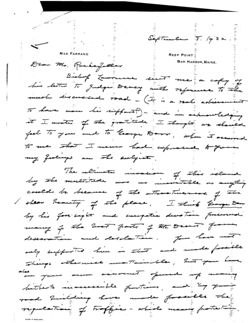 September 5, 1932.
MAX FARRAND
REEF POINT
BAR HARBOR, MAINE.
Dear Mr. Rockefeller
Bishop Lawrence sent me a copy of
his letter to Judge Deasy with reference to the
much discussed road - (it is a real achievement
to have won his support) and in acknowledging
it I wrote of the gratitude I thought we should
feel to you and to George Dorr, when it occurred
to me that I never had expressed to you
my feelings on the subject.
The ultimate invasion of this island
by the multitude was as inevitable as anything
could be because of the attractiveness of the
sheer beauty of the place. I think George Dorr
by his foresight and energetic devotion preserved
many of the best parts of Mt Desert from
desecration and desolation. You have not
only supported him in that and made possible
things otherwise unattainable, but you have
also on your own account opened up many
hitherto inaccessible portions, and by your
road building have made possible the
regulation of traffic - which many